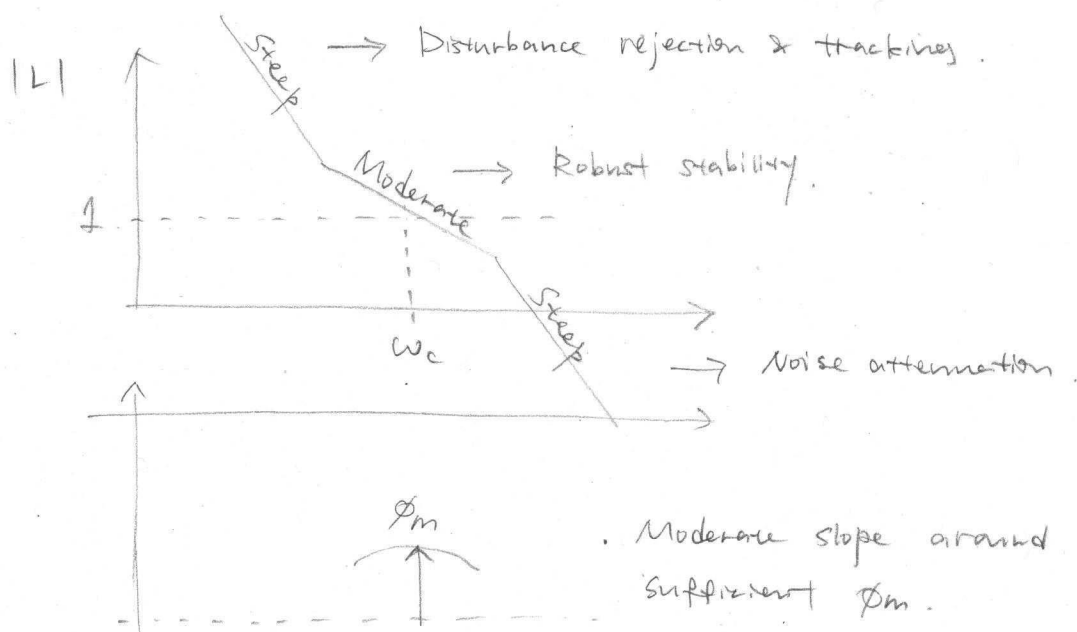 Steep → Disturbance rejection & tracking.
|L|
Moderate → Robust stability.
1
Steep
ωc
→ Noise attenuation.
φm
. Moderate slope around
sufficient φm.